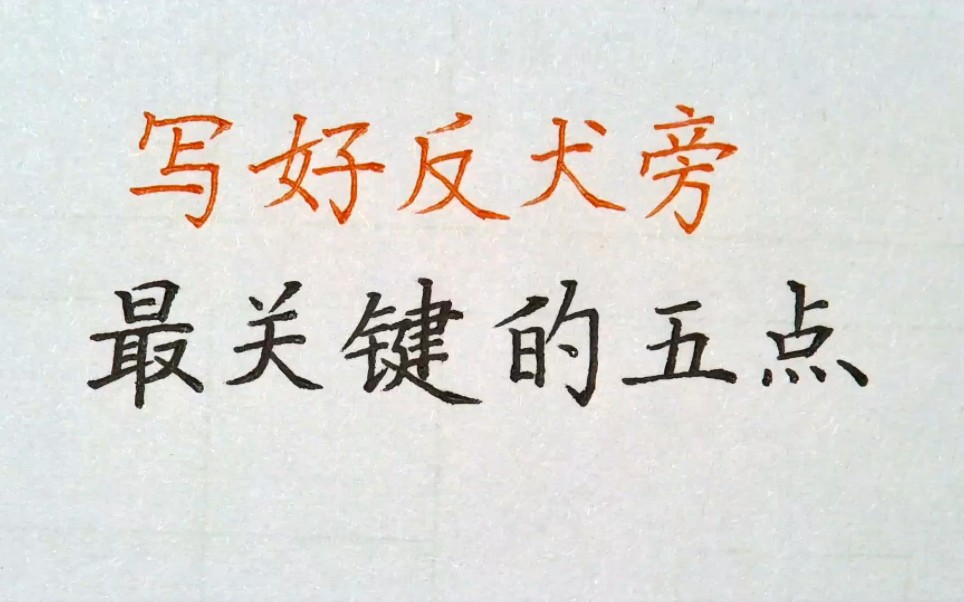 写好反犬旁
最关键的五点